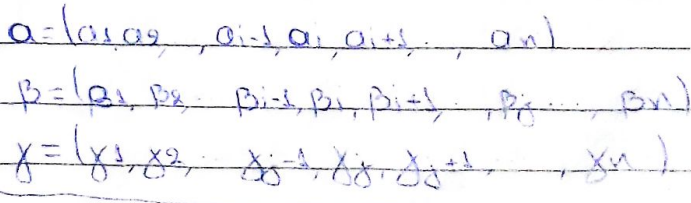 α=(α1 α2 , αi-1, αi, αi+1, ., αn)
β=(β1, β2 .. βi-1, βi, βi+1, .., βj ...., βn)
γ=(γ1, γ2, .. γj-1, γj, γj+1 ... , γn )